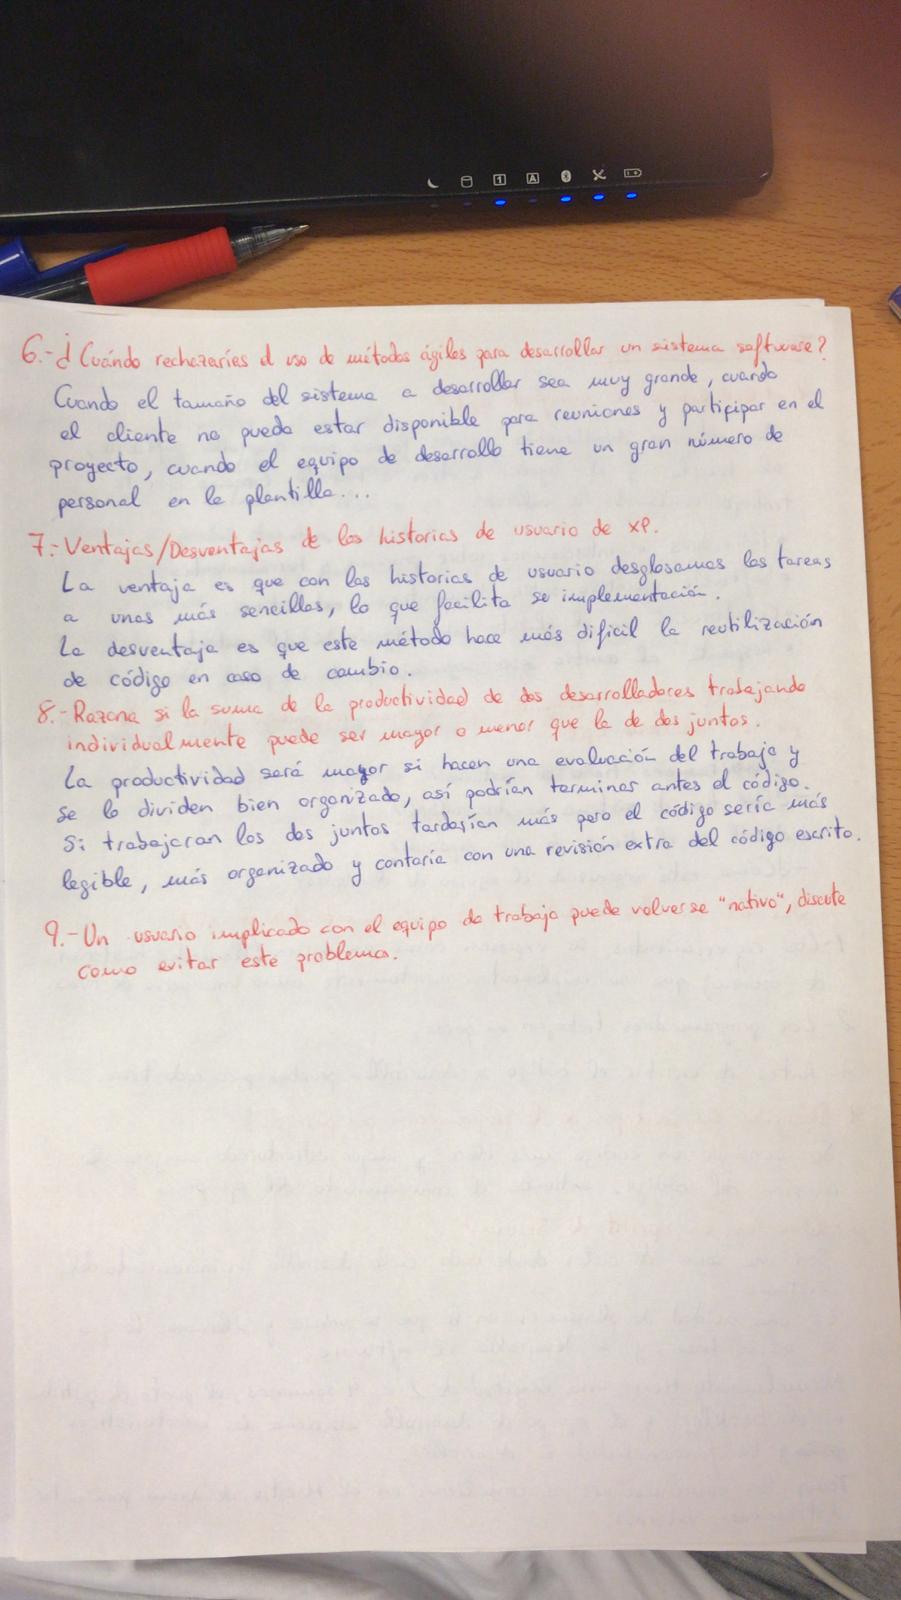 6.- ¿Cuándo rechazaríes el uso de métodos ágiles para desarrollar un sistema software?
Cuando el tamaño del sistema a desarrollar sea muy grande, cuando
el cliente no pueda estar disponible para reuniones y participar en el
proyecto, cuando el equipo de desarrollo tiene un gran número de
personal en la plantilla...
7.- Ventajas/Desventajas de las historias de usuario de XP.
La ventaja es que con las historias de usuario desglosamos las tareas
a unas más sencillas, lo que facilita se implementación.
La desventaja es que este método hace más dificil la reutilización
de código en caso de cambio.
8.- Razona si la suma de la productividad de dos desarrolladores trabajando
individualmente puede ser mayor o menor que la de dos juntos.
La productividad será mayor si hacen una evaluación del trabajo y
se lo dividen bien organizado, así podrían terminar antes el código.
Si trabajaran los dos juntos tardarían más pero el código sería más
legible, más organizado y contaría con una revisión extra del código escrito.
9.- Un usuario implicado con el equipo de trabajo puede volverse "nativo", discute
como evitar este problema.